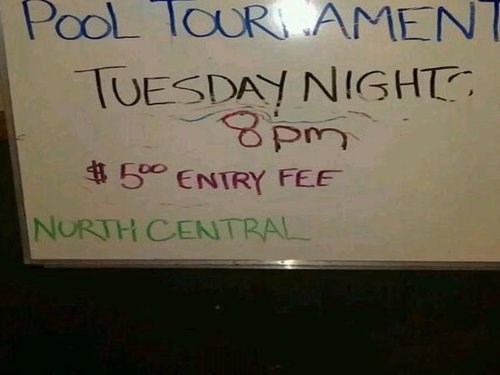 POOL TOURNAMENT
TUESDAY NIGHTS
8pm
$5⁰⁰ ENTRY FEE
NORTH CENTRAL